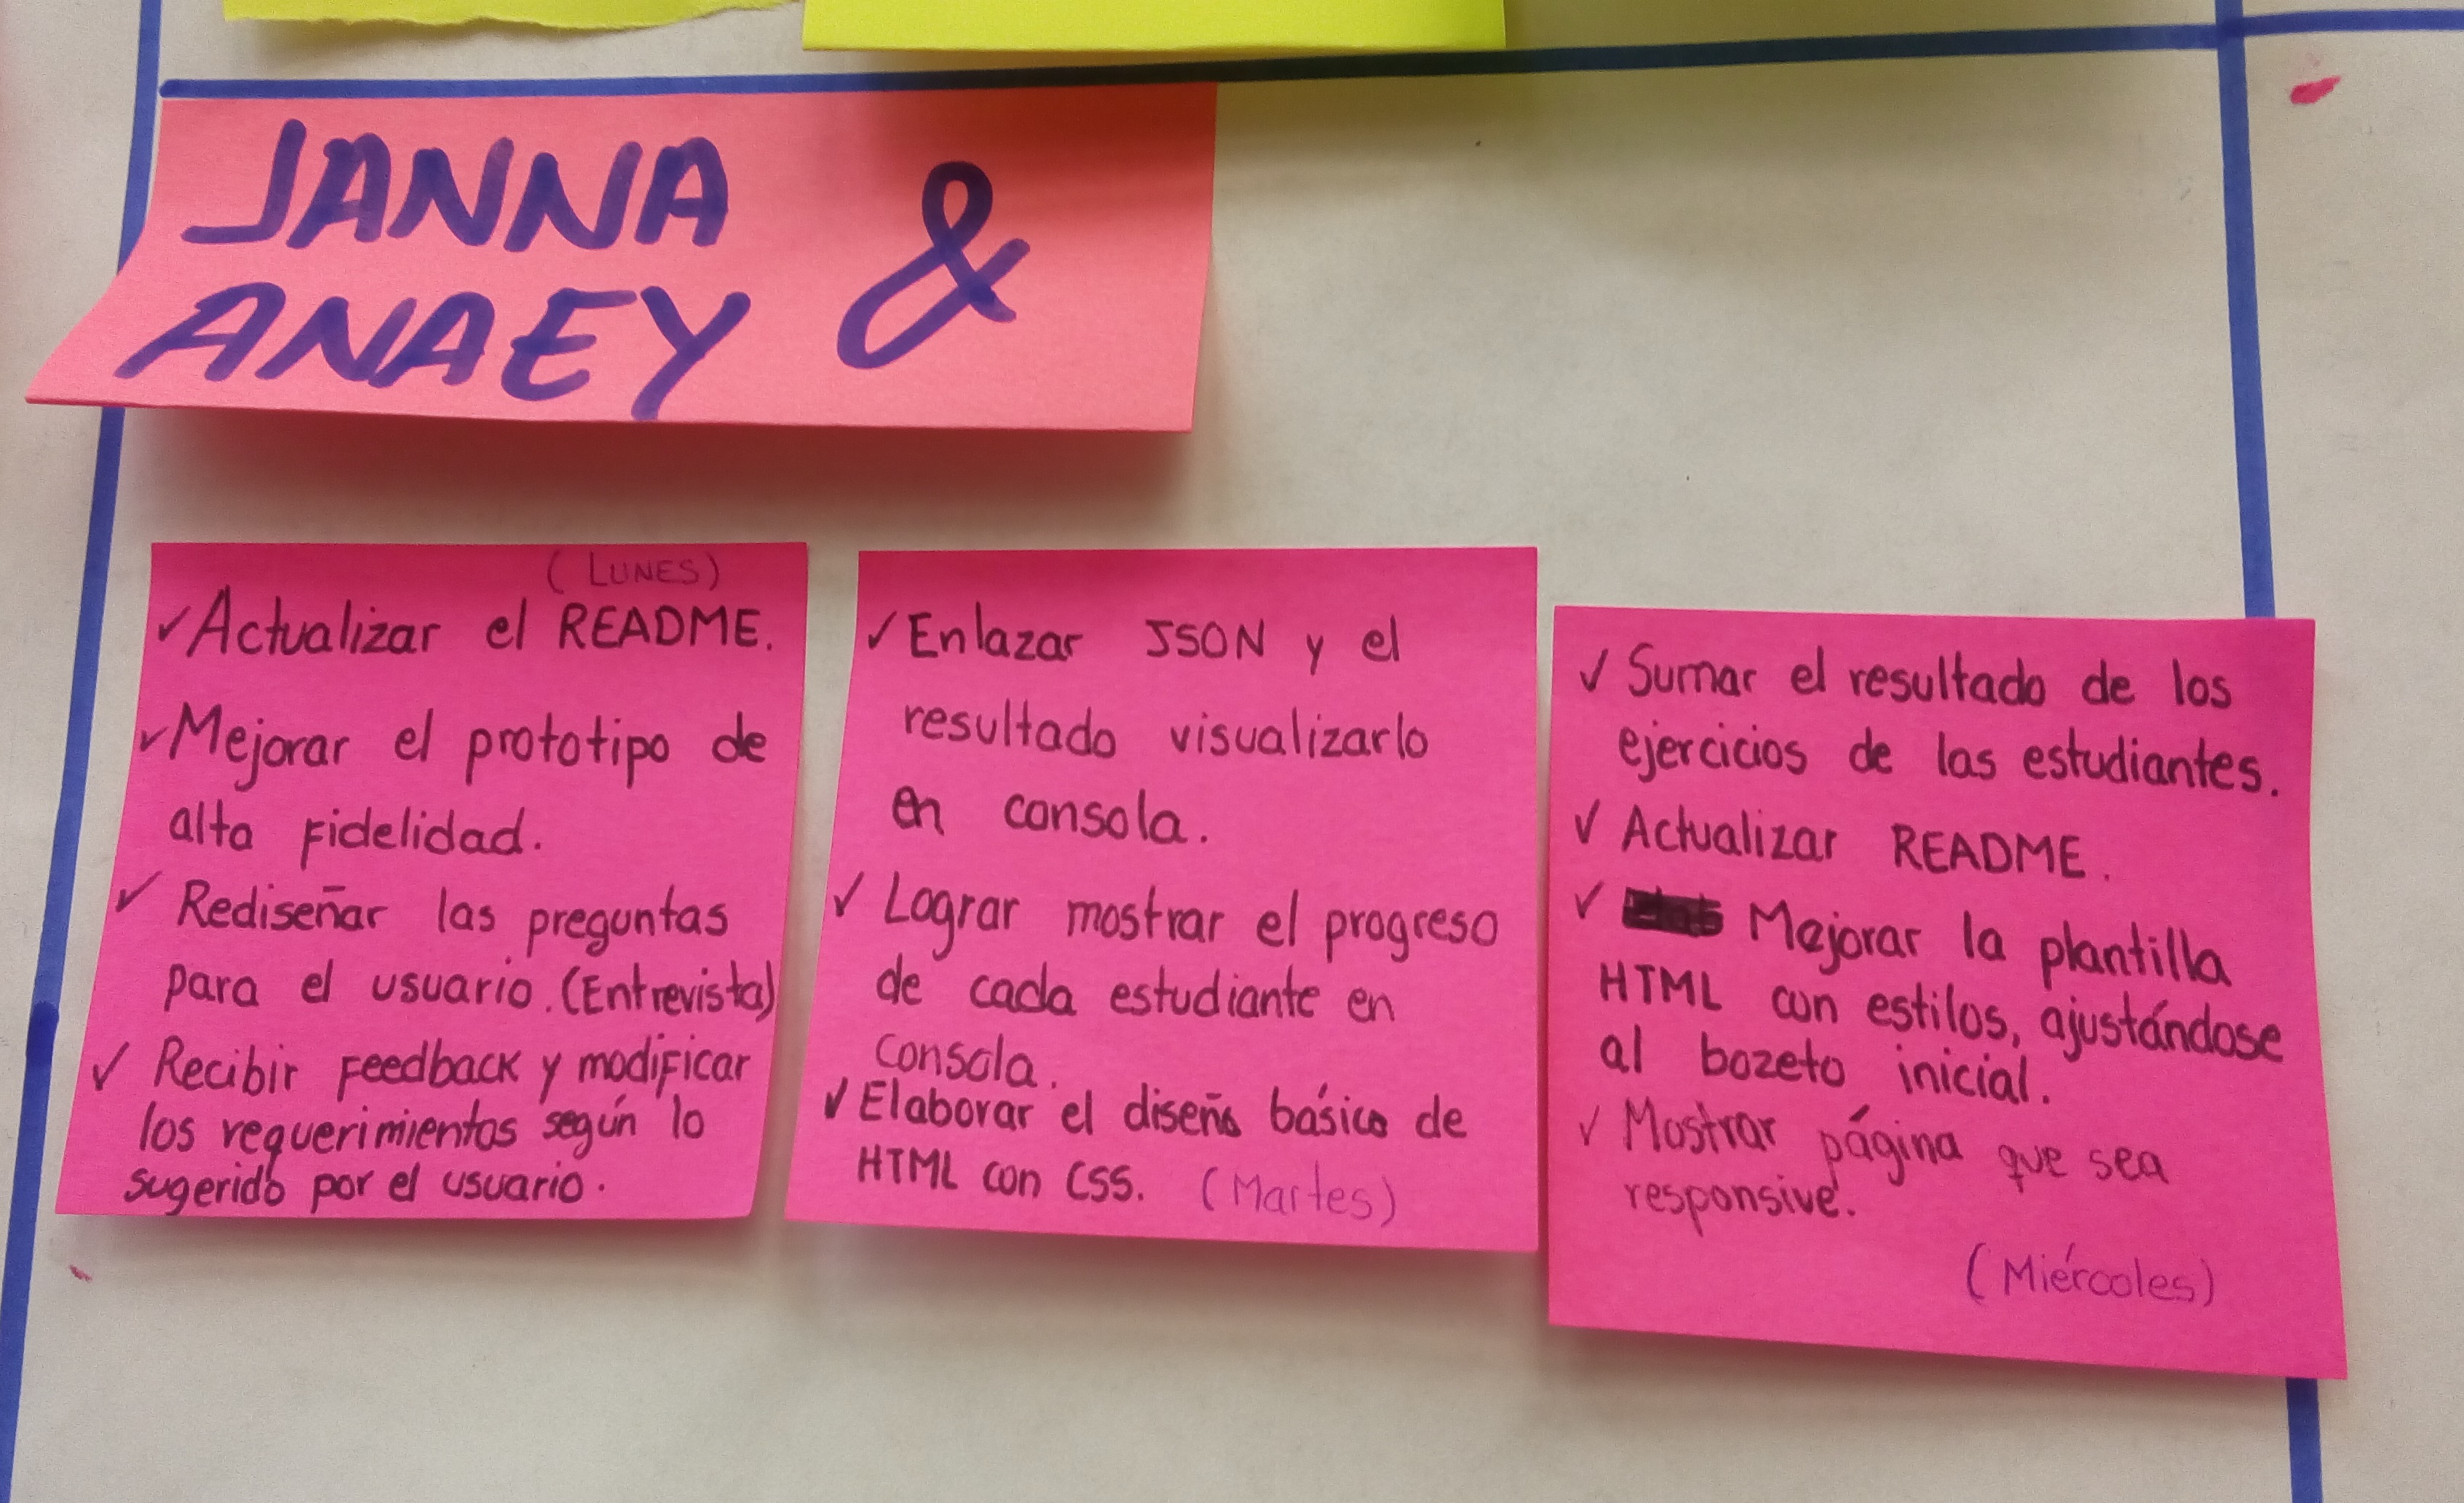 JANNA &
ANAEY
(LUNES)
✓Actualizar el README.
✓Mejorar el prototipo de
alta fidelidad.
✓ Rediseñar las preguntas
para el usuario. (Entrevista)
✓ Recibir feedback y modificar
los requerimientos según lo
sugerido por el usuario.
✓ Enlazar JSON y el
resultado visualizarlo
en consola.
✓ Lograr mostrar el progreso
de cada estudiante en
consola.
✓ Elaborar el diseño básico de
HTML con CSS. (Martes)
✓ Sumar el resultado de los
ejercicios de las estudiantes.
✓ Actualizar README.
✓ Mejorar la plantilla
HTML con estilos, ajustándose
al bozeto inicial.
✓ Mostrar página que sea
responsive.
(Miércoles)